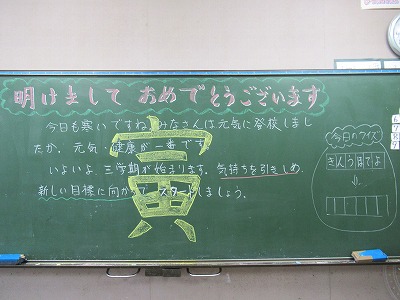 明けまして おめでとうございます
今日も寒いですね。みなさんは元気に登校しまし
たか。元気・健康が一番です。
いよいよ、三学期が始まります。気持ちを引きしめ、
新しい目標に向かって、スタートしましょう。
寅
今日のクイズ